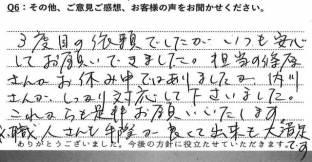 Q6：その他、ご意見ご感想、お客様の声をお聞かせください。
3度目の依頼でしたが いつも安心
してお願いできました。担当の篠原
さんがお休み中ではありましたが、内川
さんが、しっかり対応して下さいました。
これからも是非お願いいたします
職人さんも手際が良くて出来も大満足
です
ありがとうございました。今後の方針に役立たせていただきます。